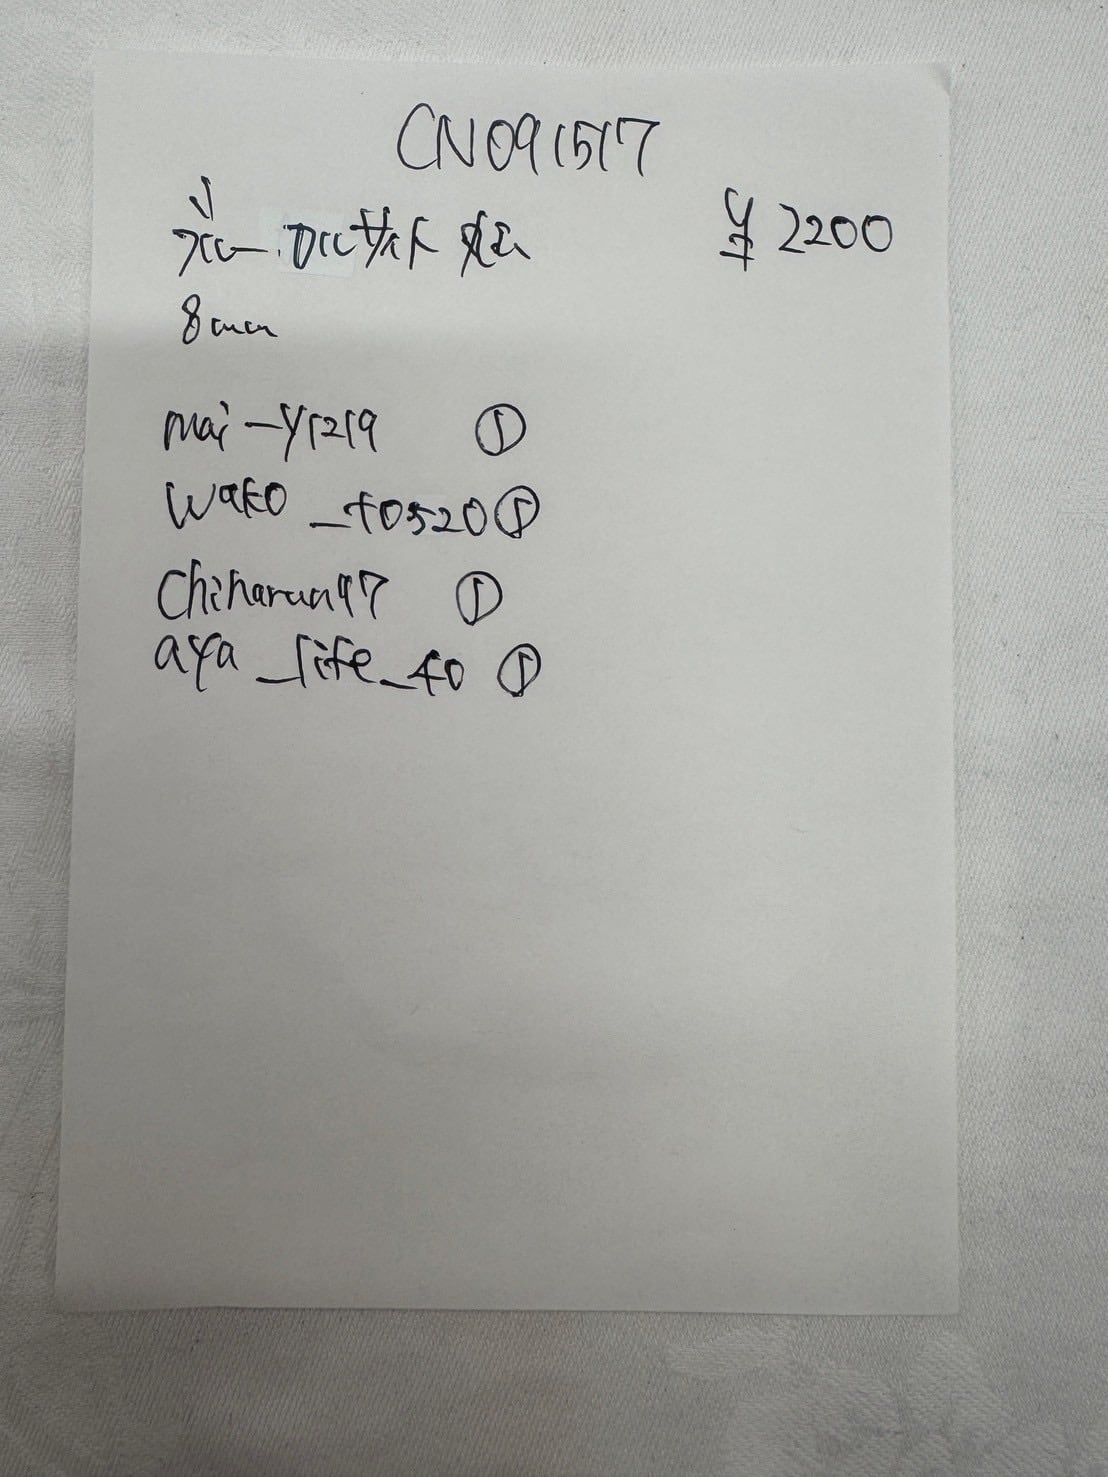 CN091517
¥2200
8mm
mai-y1219 ①
wako_t0520 ①
Chiharun97 ①
aya_life_40 ①